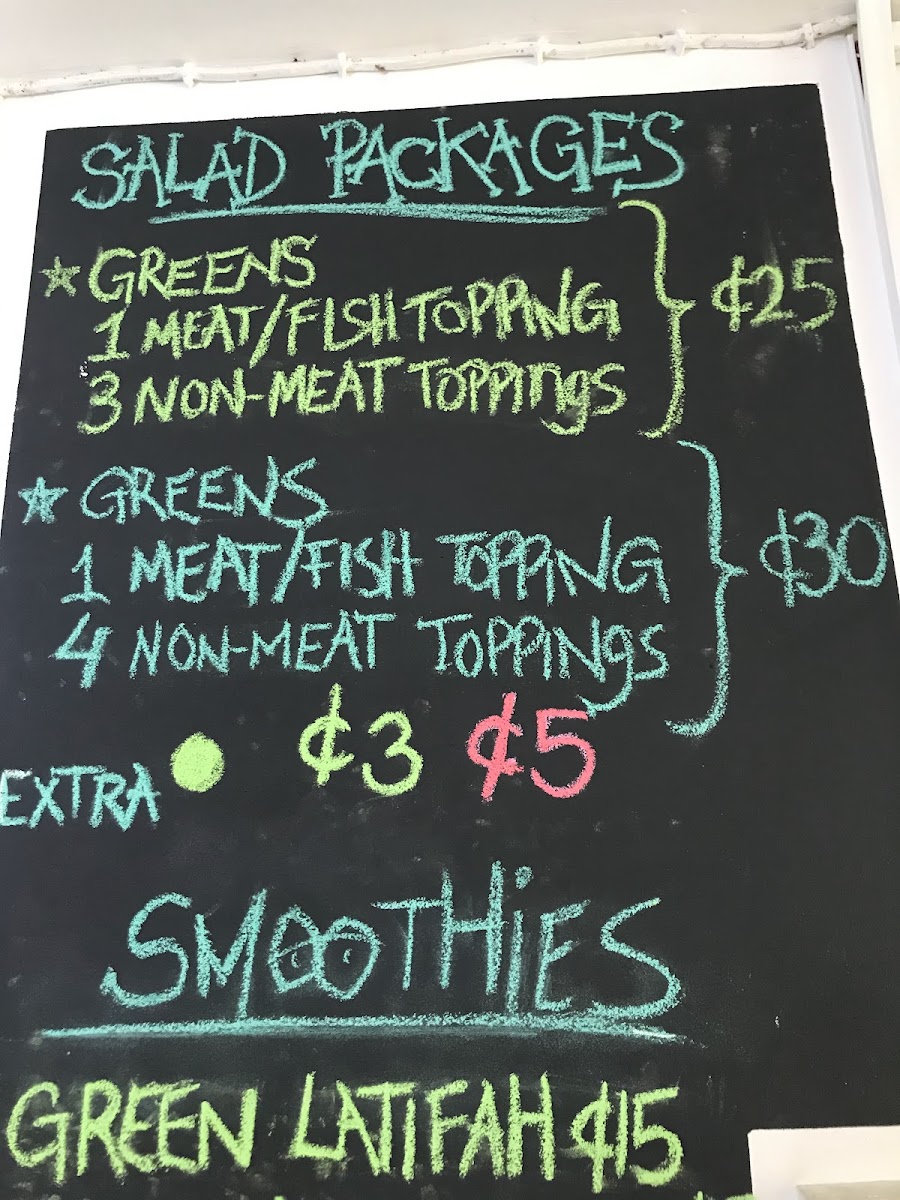 SALAD PACKAGES
GREENS
1 MEAT/FISH TOPPING
3 NON-MEAT TOPPINgs
₵25
GREENS
1 MEAT/FISH TOPPING
4 NON-MEAT TOPPINgs
₵30
EXTRA ₵3 ₵5
SMOOTHiES
GREEN LATIFAH ₵15